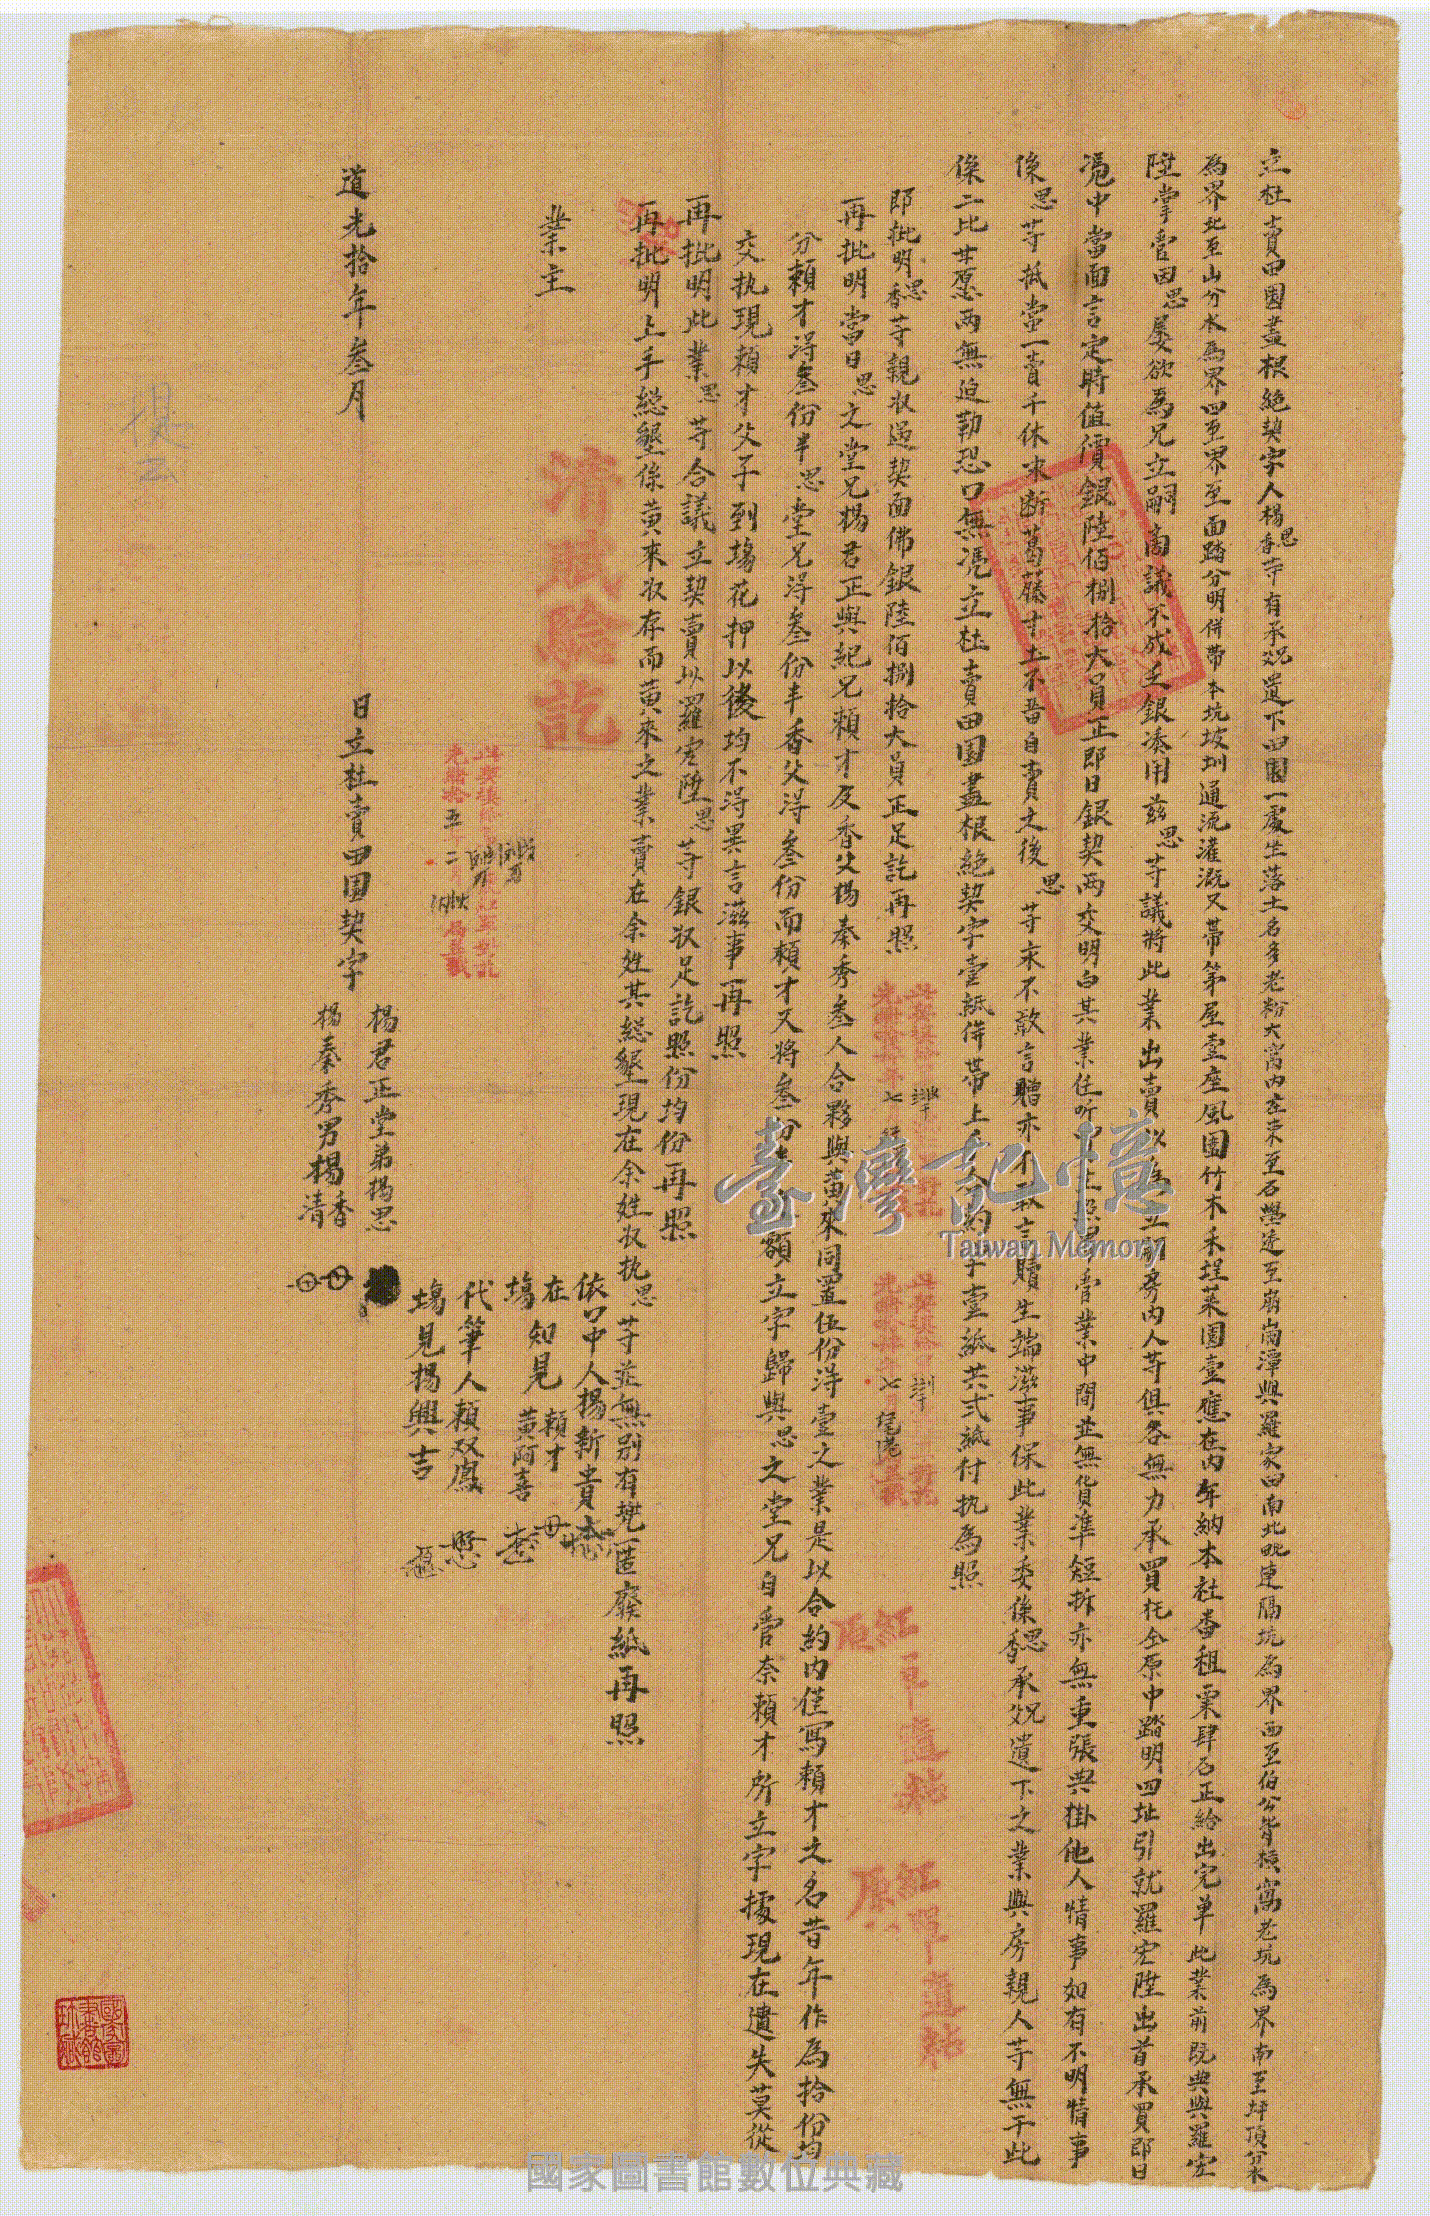 立杜賣田園盡根絕契字人楊思香等有承父兄遺下田園一處坐落土名多老粉大窩內庄東至石壆透至崩崗潭與羅家田南北毗連隔坑為界西至伯公背橫窩老坑為界南至坪頂分水
為界北至山分水為界四至界至面踏分明併帶本坑坡圳通流灌溉又帶第屋壹座風圍竹木禾埕菜園壹應在內年納本社番租粟肆石正給出完單此業前既典與羅宏
陞掌管因思屢欲為兄立嗣商議不成乏銀凑用茲思等議將此業出賣以為立嗣房內人等俱各無力承買托仝原中踏明四址引就羅宏陞出首承買即日
憑中當面言定時值價銀陸佰捌拾大員正即日銀契兩交明白其業任听 管業中間並無貨準短拆亦無重張典掛他人情事如有不明情事
係思等抵當一賣千休永断葛藤寸土不留自賣之後思等永不敢言贈亦不敢言贖生端滋事保此業委係思香承父兄遺下之業與房親人等無干此
係二比甘愿兩無迫勒恐口無憑立杜賣田園盡根絕契字壹紙併帶上手合約字壹紙共弍紙付执為照
即批明思香等親收過契面佛銀陸佰捌拾大員正足訖再照
再批明當日思之堂兄楊君正與紀兄賴才及香父楊秦秀叁人合夥與黃來同置伍份得壹之業是以合約內僅寫賴才之名昔年作為拾份均
分賴才得叁份半思堂兄得叁份半香父得叁份而賴才又將叁份 額立字歸與思之堂兄自管奈賴才所立字據現在遺失莫從
交执現賴才父子到塲花押以後均不得異言滋事再照
再批明此業思等合議立契賣以羅宏陞思等銀收足訖照份均份再照
再批明上手総墾係黃來收存而黃來之業賣在余姓其総墾現在余姓收执思等並無別有執匿廢紙再照
業主
清賦驗訖
依口中人楊新貴
在塲知見 賴才 黃阿喜
代筆人賴双鳳
塲見楊興吉
道光拾年叁月 日立杜賣田園契字
楊君正堂弟楊思
楊秦秀男楊香清
臺灣記憶
Taiwan Memory
國家圖書館數位典藏